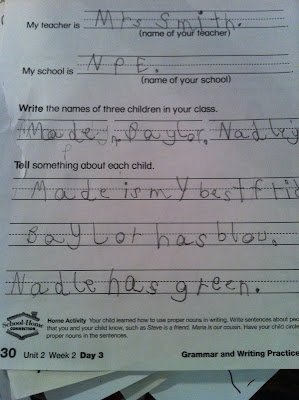 My teacher is Mrs Smith.
(name of your teacher)
My school is NPE.
(name of your school)
Write the names of three children in your class.
Baylor.
Tell something about each child.
Made is my best frie
Baylor has blou.
Nadle has green.
School-Home CONNECTION
Home Activity Your child learned how to use proper nouns in writing. Write sentences about peo
that you and your child know, such as Steve is a friend. Maria is our cousin. Have your child circle
proper nouns in the sentences.
30 Unit 2 Week 2 Day 3 Grammar and Writing Practice